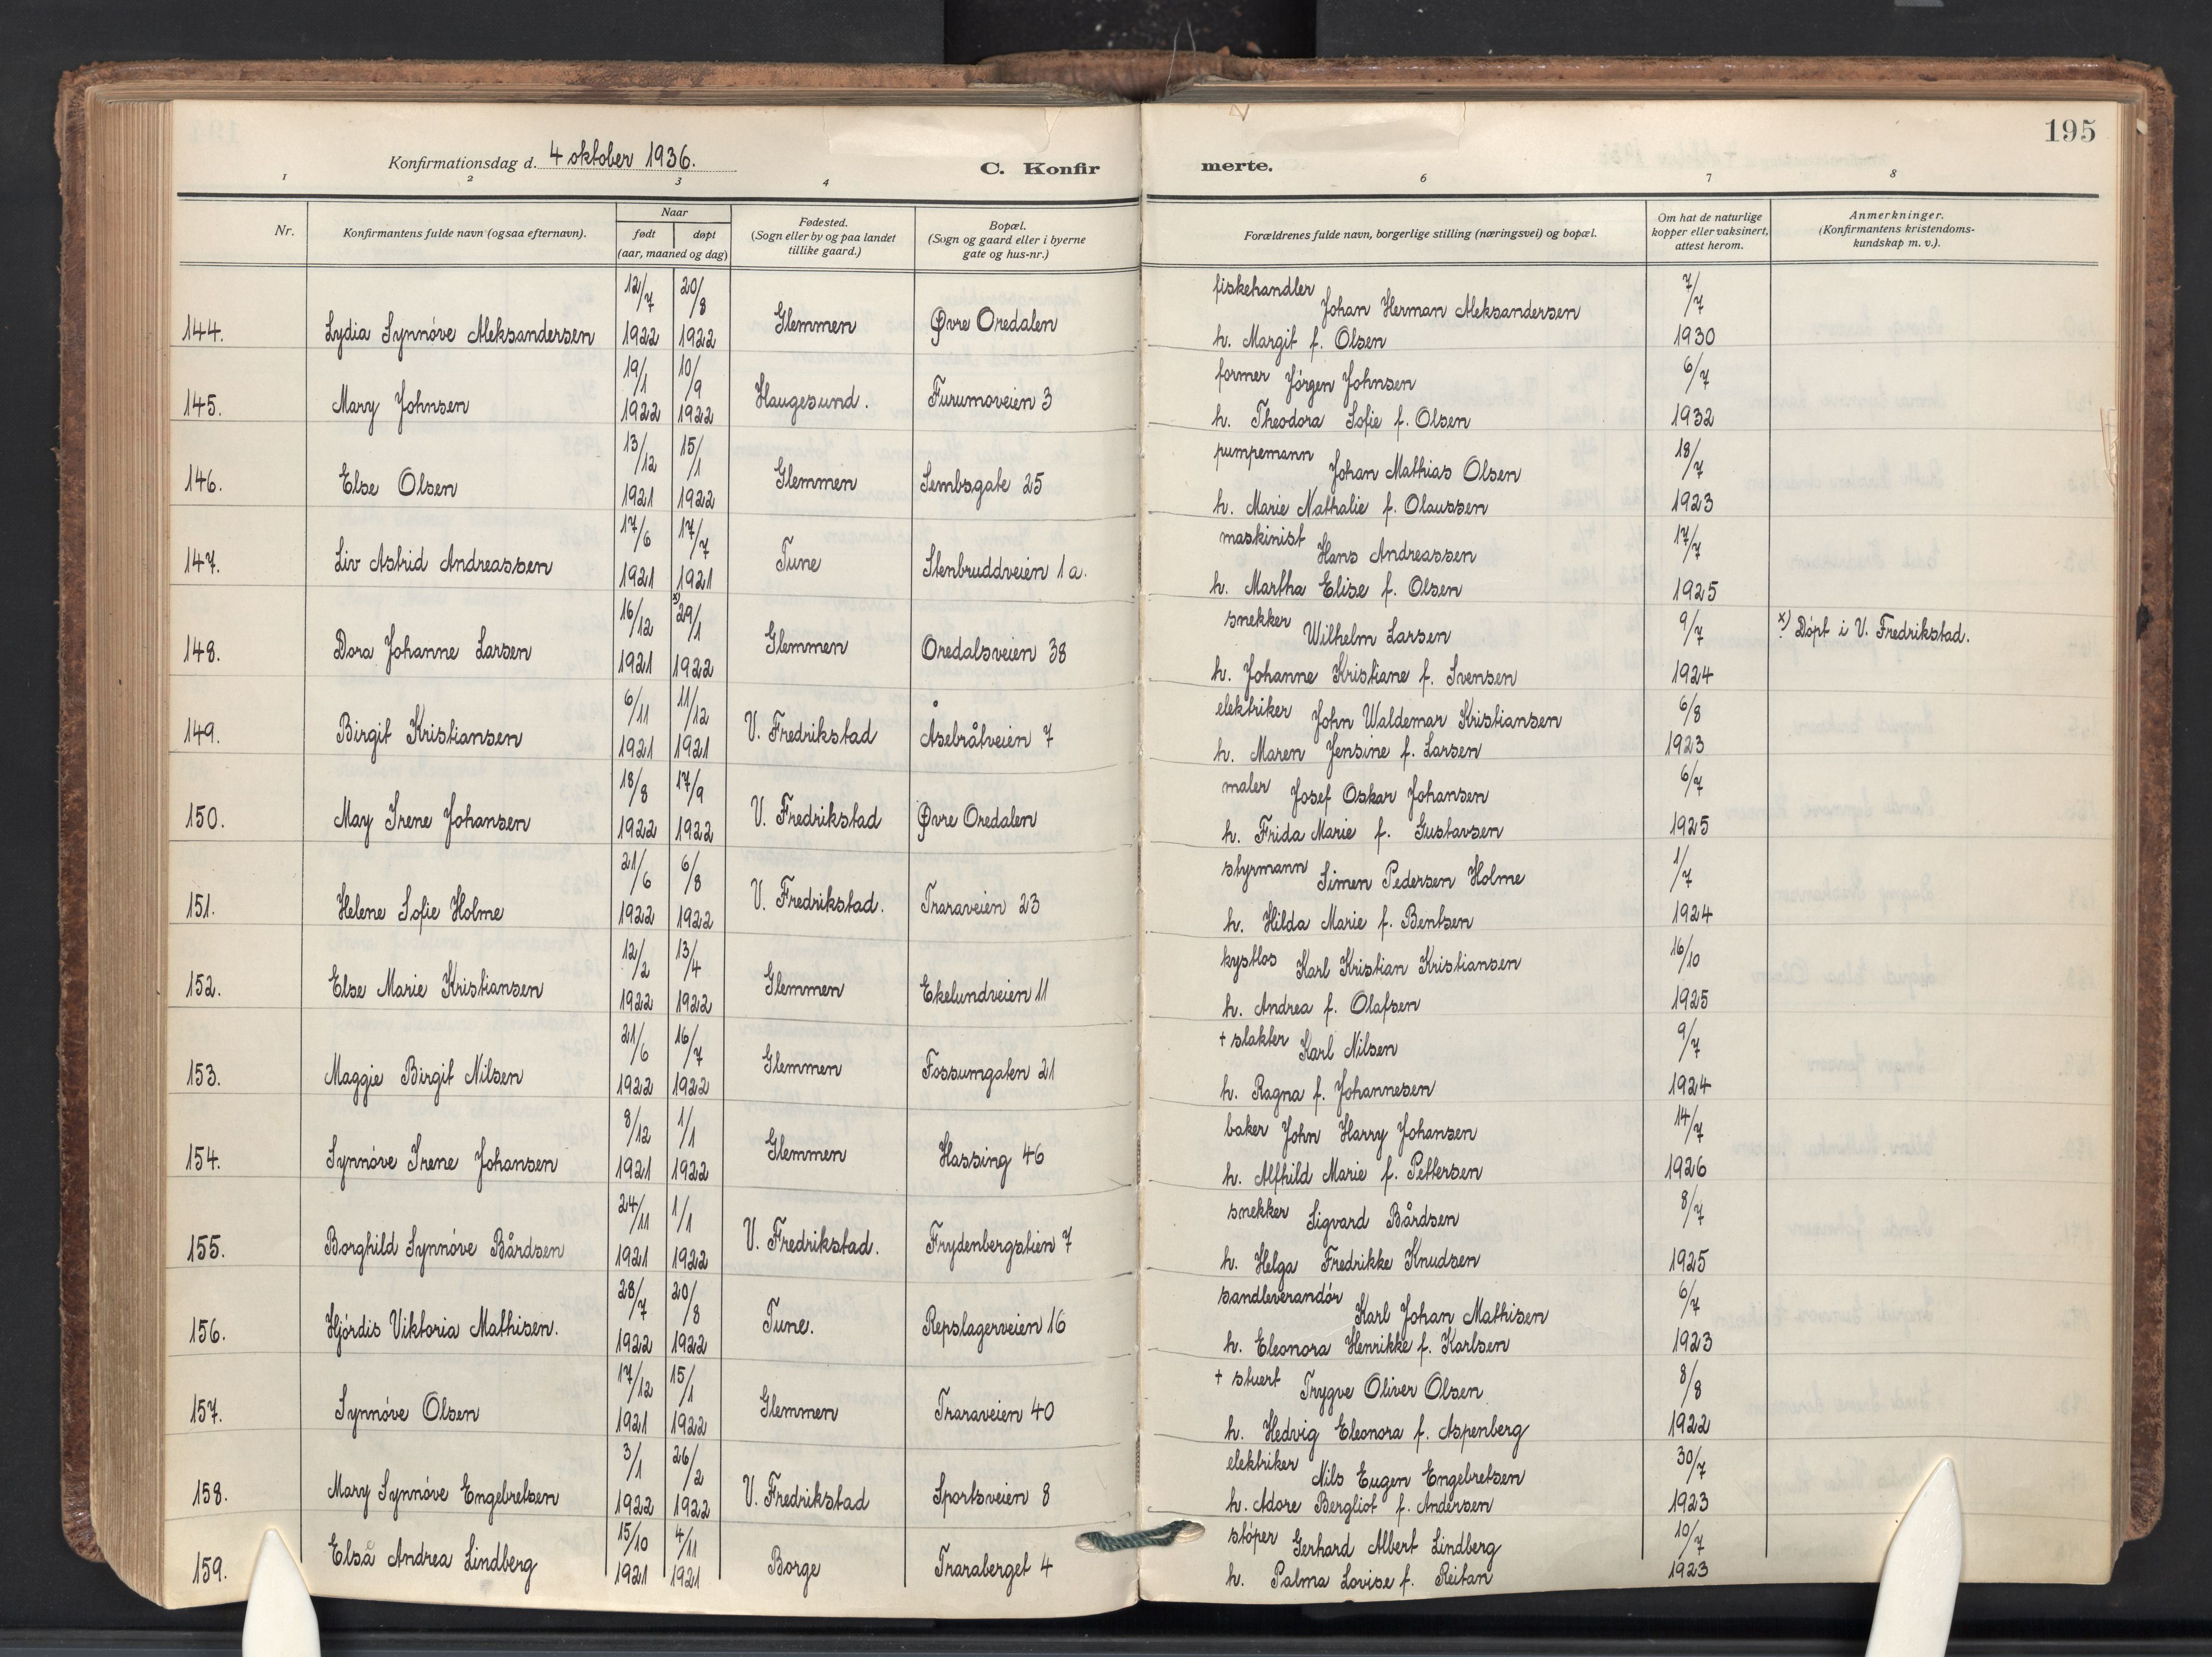 195
Konfirmationsdag d. 4 oktober 1936.
C. Konfirmerte.
1 2 3 4 6 7 8
Nr.
Konfirmantens fulde navn (ogsaa efternavn).
Naar
født døpt
(aar, maaned og dag)
Fødested.
(Sogn eller by og paa landet
tillike gaard.)
Bopæl.
(Sogn og gaard eller i byerne
gate og hus-nr.)
Forældrenes fulde navn, borgerlige stilling (næringsvei) og bopæl.
Om hat de naturlige
kopper eller vaksinert,
attest herom.
Anmerkninger.
(Konfirmantens kristendoms-
kundskap m. v.).
12/7 20/8 fiskehandler Johan Herman Aleksandersen 7/7
144. Lydia Synnöve Aleksandersen 1922 1922 Glemmen Øvre Oredalen h. Margit f. Olsen 1930
19/1 10/9 former Jörgen Johnsen 6/7
145. Mary Johnsen 1922 1922 Haugesund. Furumoveien 3 h. Theodora Sofie f. Olsen 1932
13/12 15/1 pumpemann Johan Mathias Olsen 18/7
146. Else Olsen 1921 1922 Glemmen Sembsgate 25 h. Marie Nathalie f. Olaussen 1923
17/6 17/7 maskinist Hans Andreassen 17/7
147. Liv Astrid Andreassen 1921 1921 Tune Stenbruddveien 1a. h. Martha Elise f. Olsen 1925
16/12 x) 29/1 snekker Wilhelm Larsen 9/7 x) Döpt i V. Fredrikstad.
148. Dora Johanne Larsen 1921 1922 Glemmen Oredalsveien 38 h. Johanne Kristiane f. Svensen 1924
6/11 11/12 elektriker John Waldemar Kristiansen 6/8
149. Birgit Kristiansen 1921 1921 V. Fredrikstad Åsebråtveien 7 h. Maren Jensine f. Larsen 1923
18/8 17/9 maler Josef Oskar Johansen 6/7
150. May Irene Johansen 1922 1922 V. Fredrikstad Øvre Oredalen h. Frida Marie f. Gustavsen 1925
21/6 6/8 styrmann Simen Pedersen Holme 1/7
151. Helene Sofie Holme 1922 1922 V. Fredrikstad. Traraveien 23 h. Hilda Marie f. Bentsen 1924
12/2 13/4 kystlos Karl Kristian Kristiansen 16/10
152. Else Marie Kristiansen 1922 1922 Glemmen Ekelundveien 11 h. Andrea f. Olafsen 1925
21/6 16/7 + slakter Karl Nilsen 9/7
153. Maggie Birgit Nilsen 1922 1922 Glemmen Fossumgaten 21 h. Ragna f. Johannesen 1924
8/12 1/1 baker John Harry Johansen 14/7
154. Synnöve Irene Johansen 1921 1922 Glemmen Hassing 46 h. Alfhild Marie f. Pettersen 1926
24/11 1/1 snekker Sigvard Bårdsen 8/7
155. Borghild Synnöve Bårdsen 1921 1922 V. Fredrikstad. Frydenbergstien 7 h. Helga Fredrikke Knudsen 1925
28/7 20/8 sandleverandör Karl Johan Mathisen 6/7
156. Hjördis Viktoria Mathisen. 1922 1922 Tune. Repslagerveien 16 h. Eleonora Henrikke f. Karlsen 1923
17/12 15/1 + stuert Trygve Oliver Olsen 8/8
157. Synnöve Olsen 1921 1922 Glemmen Traraveien 40 h. Hedvig Eleonora f. Aspenberg 1922
3/1 26/2 elektriker Nils Eugen Engebretsen 30/7
158. Mary Synnöve Engebretsen 1922 1922 V. Fredrikstad Sportsveien 8 h. Adore Bergliot f. Andersen 1923
15/10 4/11 stöper Gerhard Albert Lindberg 10/7
159. Elsa Andrea Lindberg 1921 1921 Borge Traraberget 4 h. Palma Lovise f. Reitan 1923